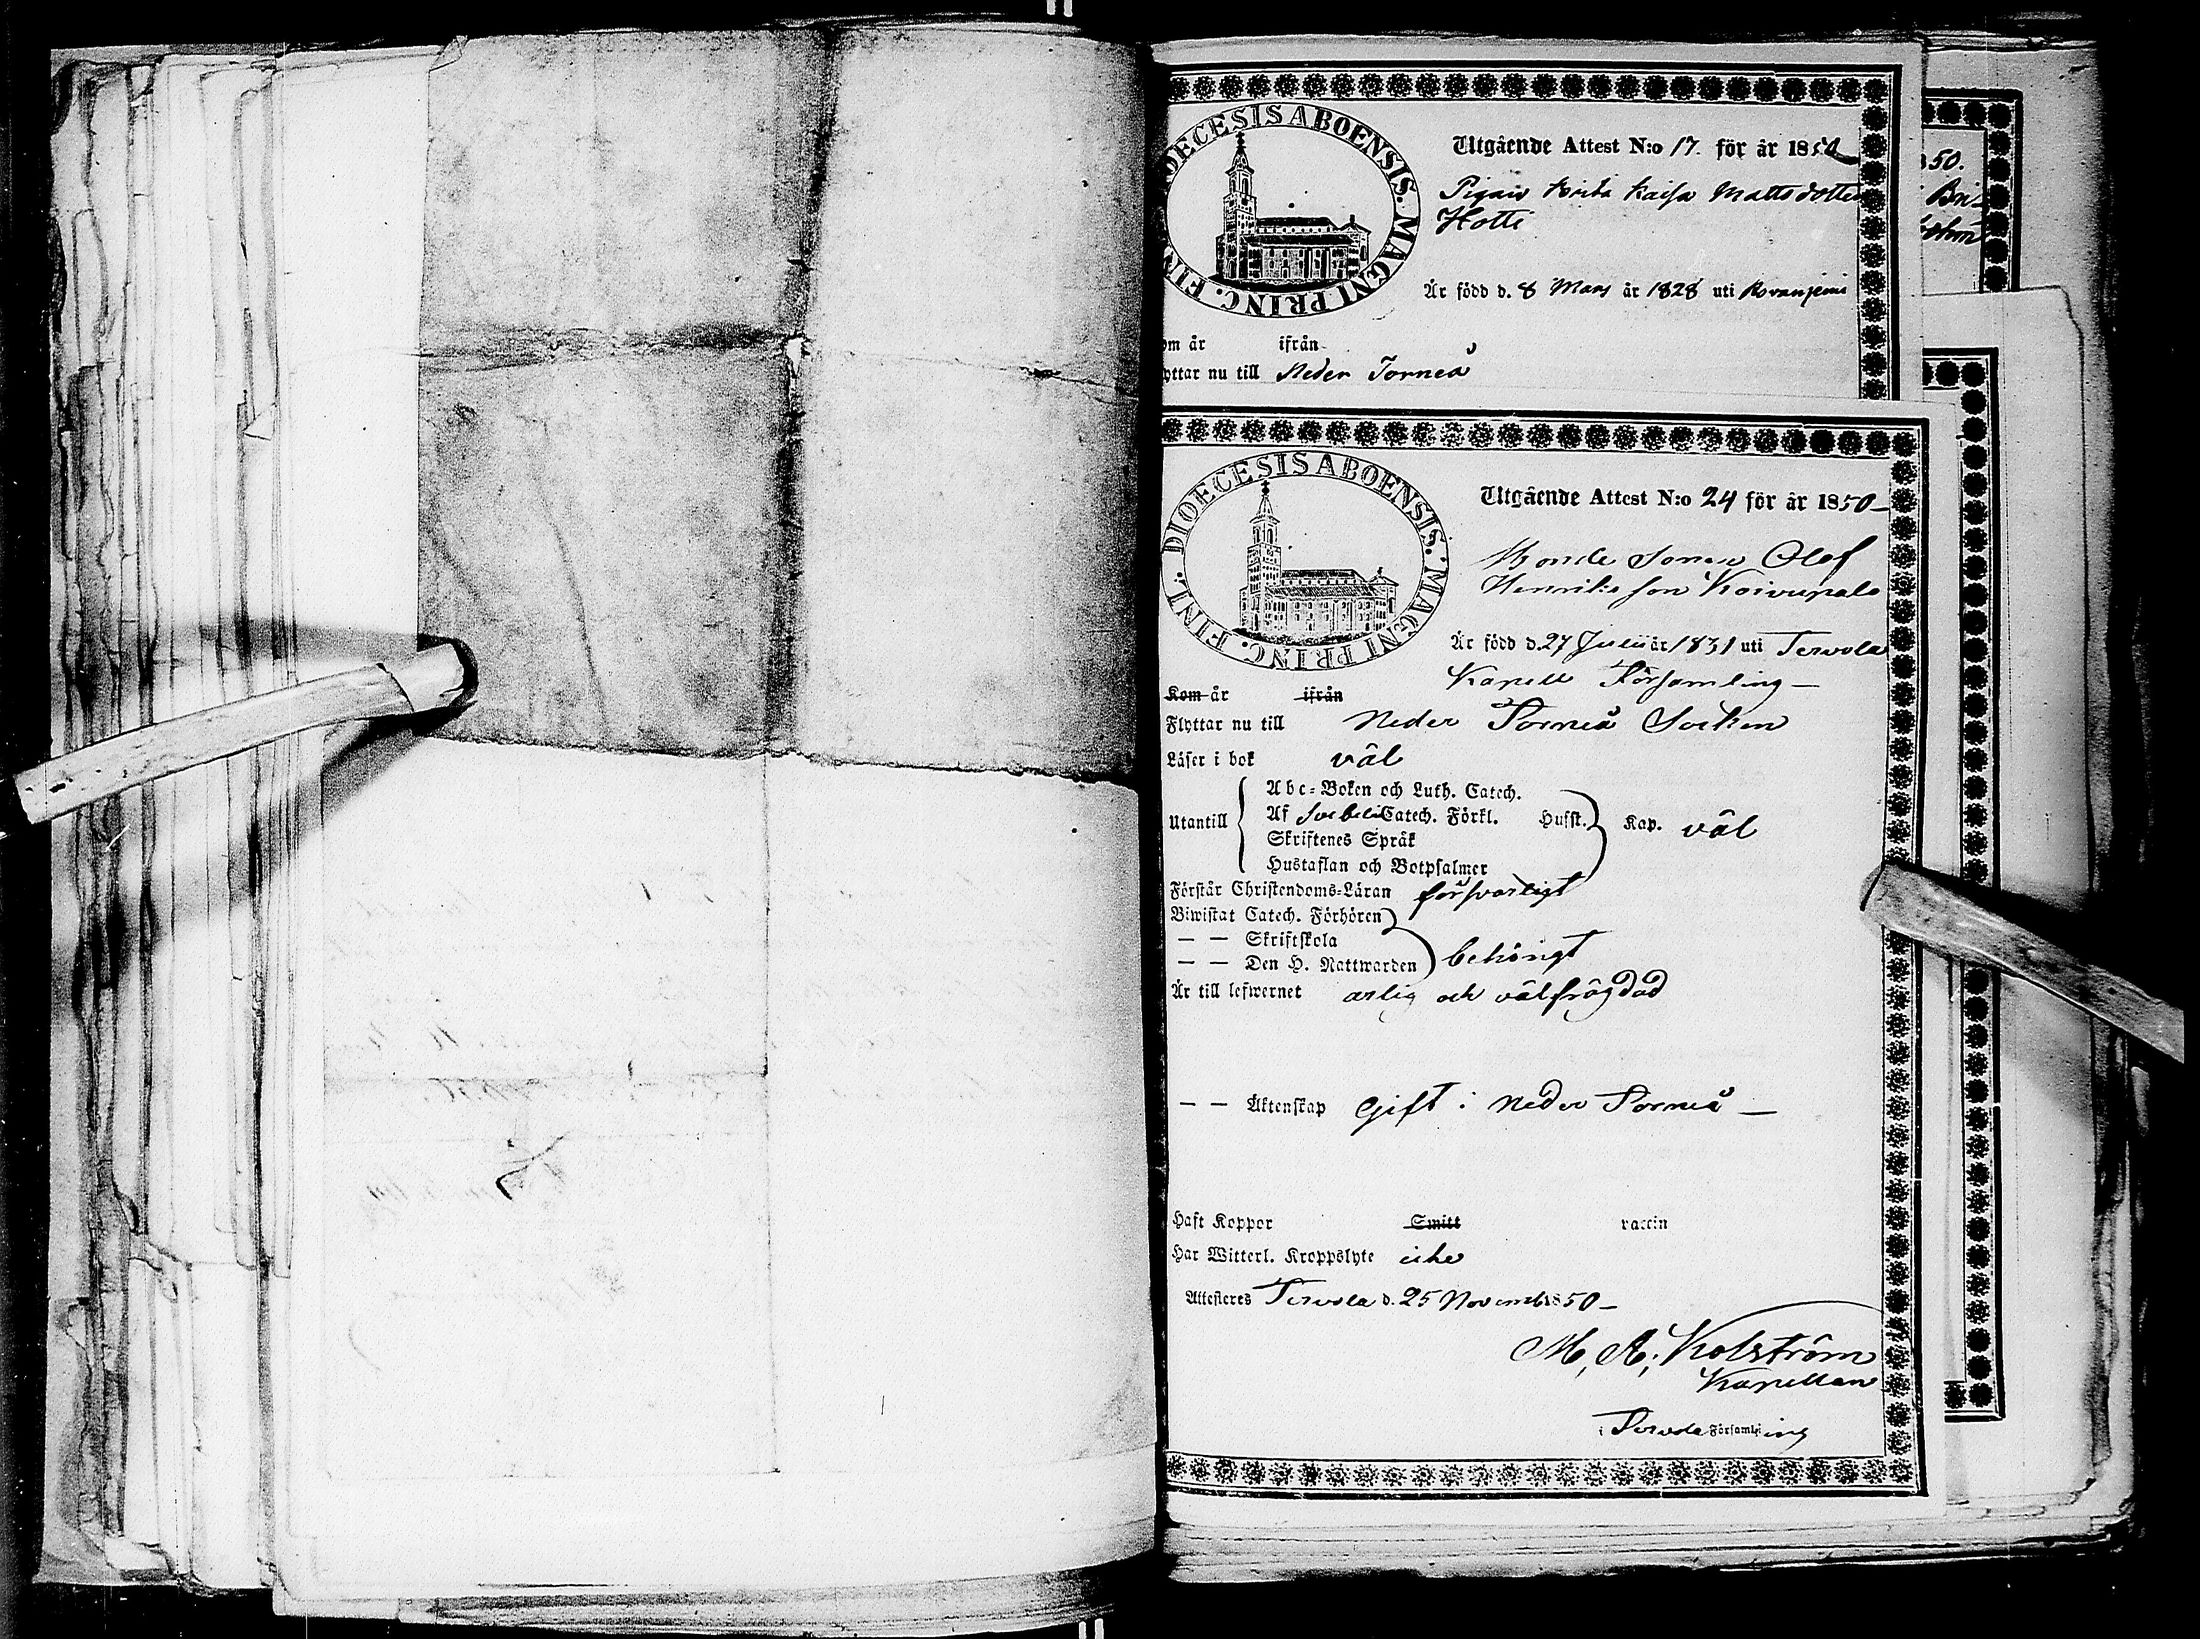 DIOECESIS ABOENSIS. MAGNI PRINC. FINL.
Utgående Attest N:o 17. för år 1850
Pigan Brita Kaisa Mattsdotter
Hotti
Är född d. 8 Mars år 1828 uti Rovaniemi
om år ifrån
yttar nu till Neder Torneå
50.
Bri-
DIOECESIS ABOENSIS. MAGNI PRINC. FINL.
Utgående Attest N:o 24 för år 1850
Bonde Sonen Olof
Henriksson Koivupalo
Är född d. 27 Julii år 1831 uti Tervola
Kapell Församling
Kom år ifrån
Flyttar nu till Neder Torneå Socken
Läser i bok väl
Abc-Boken och Luth. Catech.
Utantill Af Svebelii Catech. Förkl. Hufst. Kap. väl
Skriftenes Språk
Hustaflan och Botpsalmer
Förstår Christendoms-Läran försvarligt
Biwistat Catech. Förhören
— — Skriftskola
— — Den H. Nattwarden behörigt
Är till lefwernet ärlig och välfrägdad
— — Äktenskap Gift i Neder Torneå
Haft Koppor Smitt vaccin
Har Witterl. Kroppslyte icke
Attesteres Tervola d. 25 Novemb 1850
M. A. Kolström
Kapellan
i Tervola Församling